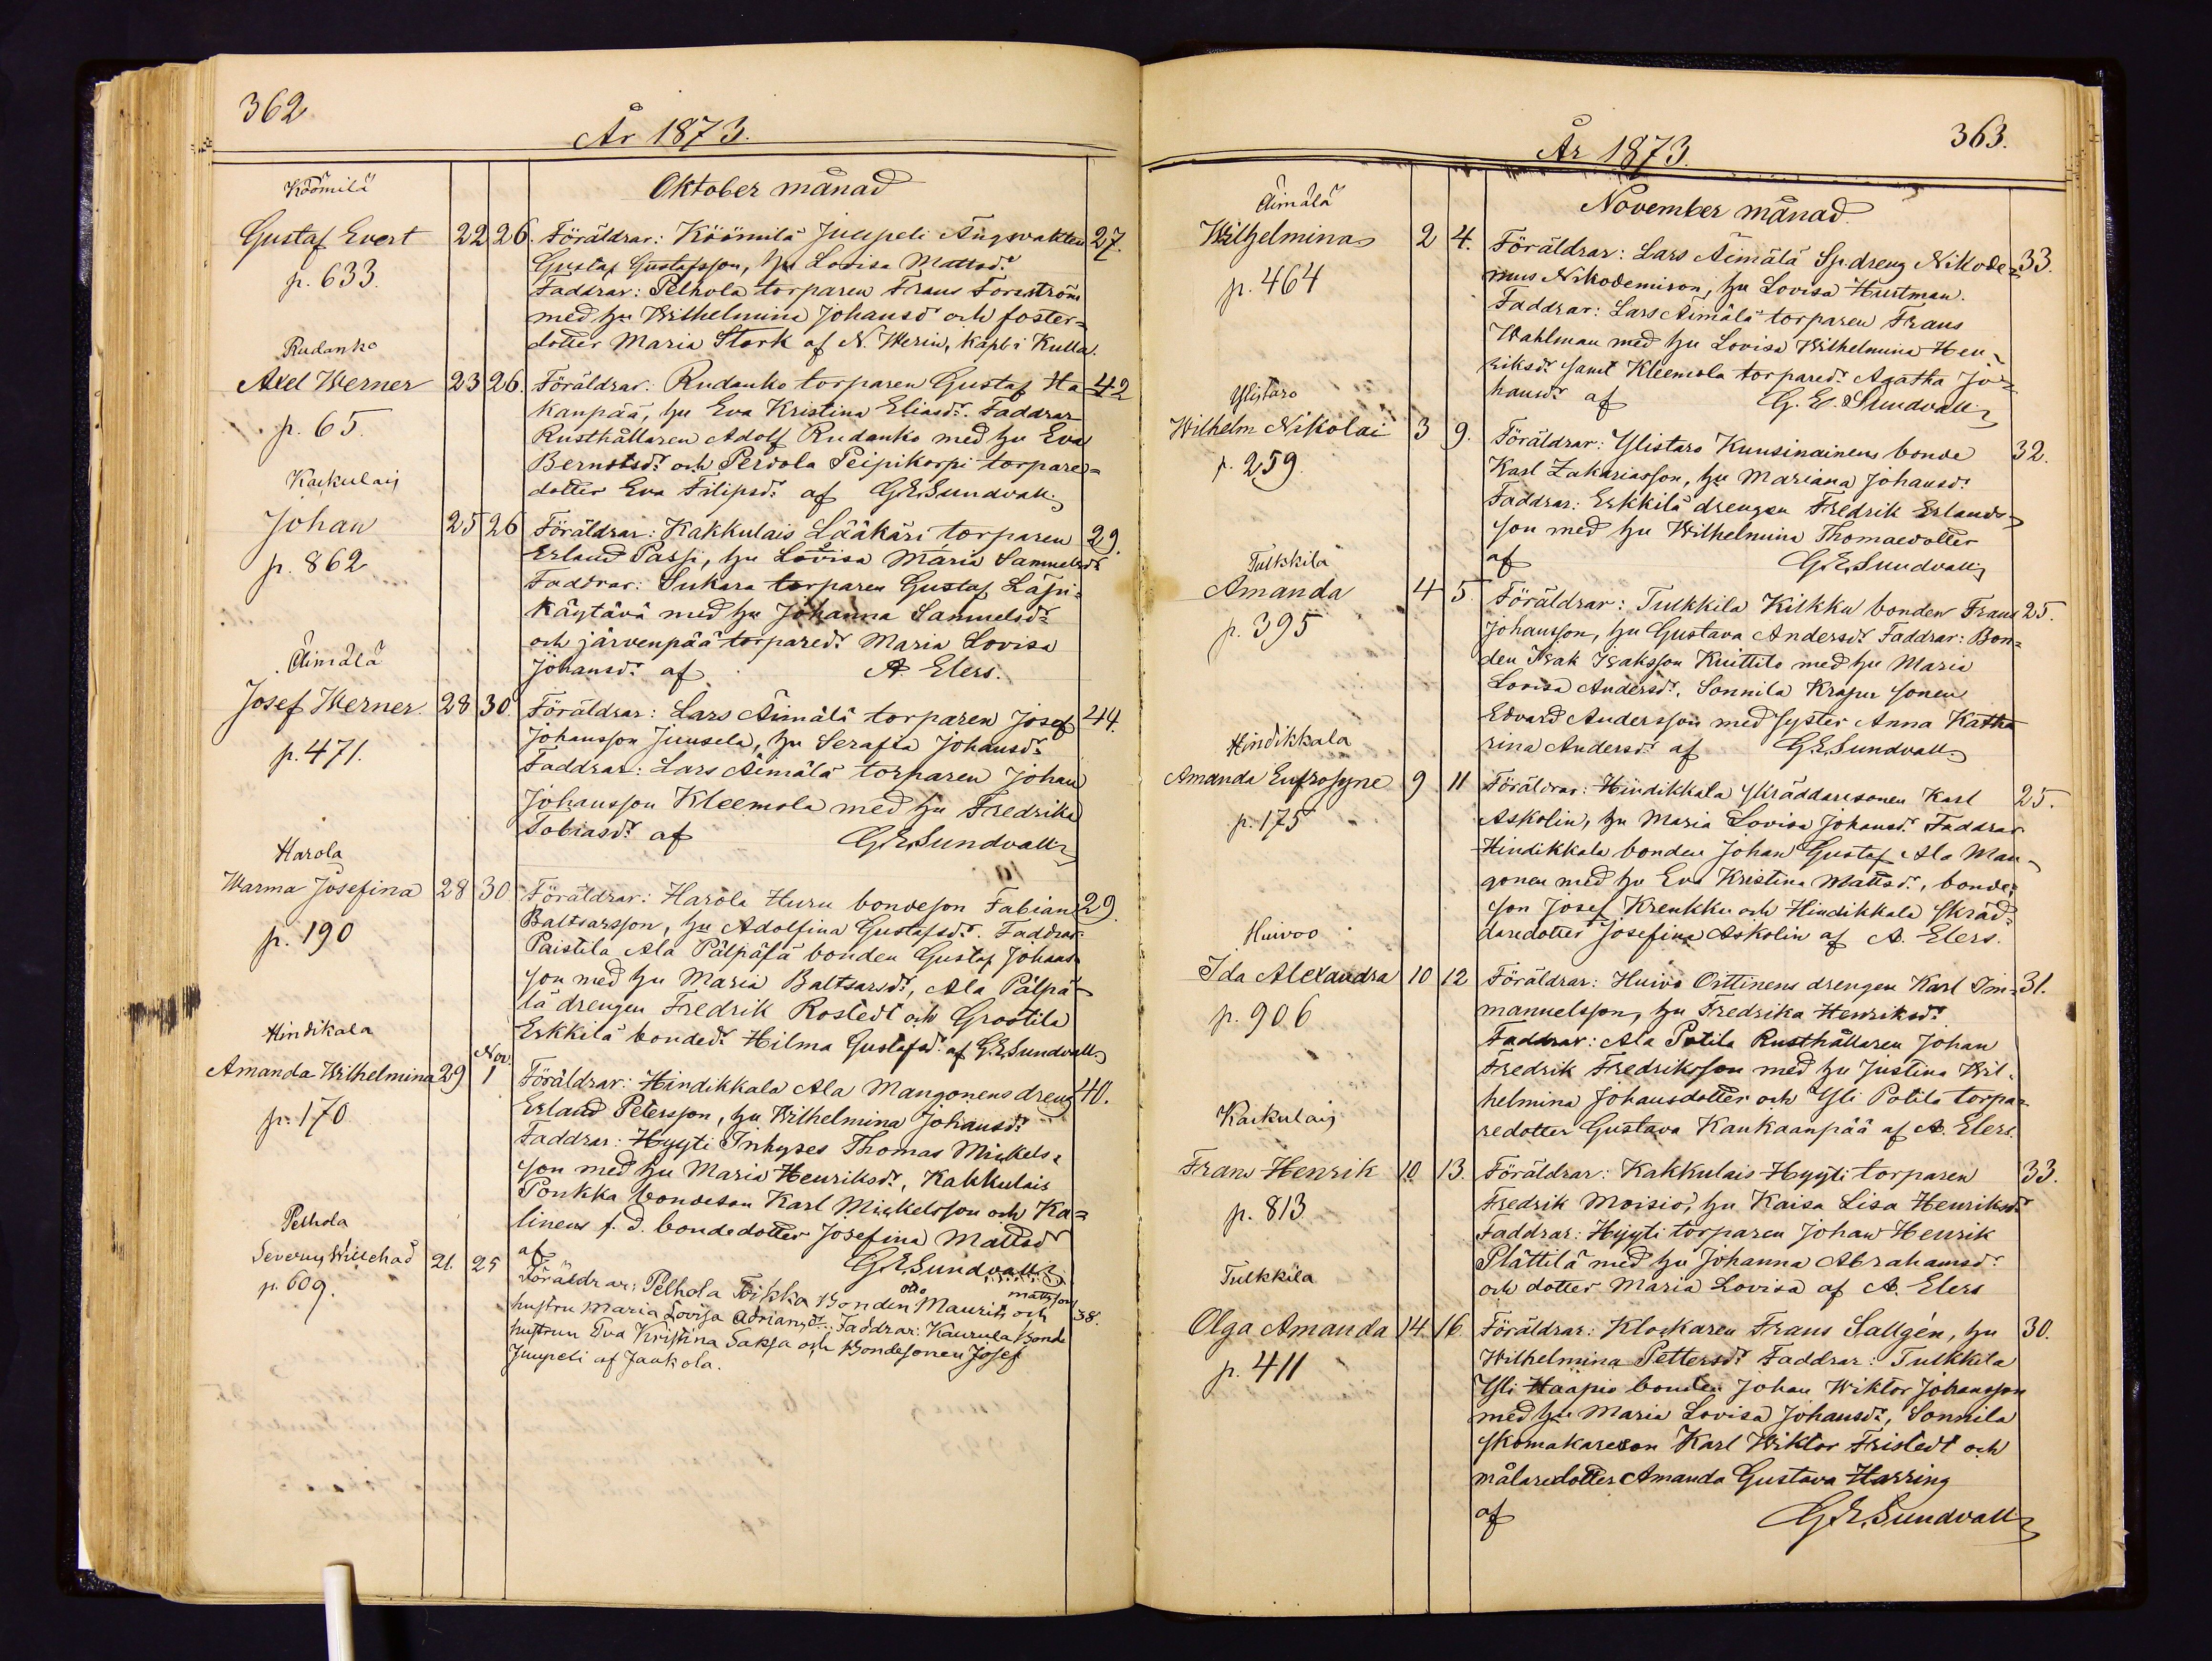 362
År 1873.
Oktober månad
Köömilä
Gustaf Evert 22 26. Föräldrar: Köömilä Juupeli Ängvakten 27.
p. 633. Gustaf Gustafsson, hu Lovisa Mattsdr
Faddrar: Pelhola torparen Frans Forsström
med hu Wilhelmina Johansd och foster=
dotter Maria Stark af N. Werin, kapl. i Kulla.
Rudanko
Axel Werner 23 26. Föräldrar: Rudanko torparen Gustaf Ha 42
kanpää, hu Eva Kristina Eliasdr. Faddrar
p. 65. Rusthållaren Adolf Rudanko med hu Eva
Berndtsdr och Perdola Peipikorpi torpare=
dotter Eva Filipsdr af GESundvall
Kackulais
Johan 25 26 Föräldrar: Kakkulais Lääkäri torparen 29.
p. 862 Erland Passi, hu Lovisa Maria Samuelsdr
Faddrar: Sukara torparen Gustaf Läpi=
käytävä med hu Johanna Samuelsdr
och järvenpää torparedr Maria Lovisa
Johansdr af A. Elers.
Äimälä
Josef Werner 28 30. Föräldrar: Lars Äimälä torparen Josef 44.
Johansson Juusela, hu Serafia Johansdr
p. 471. Faddrar: Lars Äimälä torparen Johan
Johansson Kleemola med hu Fredrika
Tobiasdr af GESundvall
Harola
Warma Josefina 28 30 Föräldrar: Harola Huru bondeson Fabian 29.
Baltsarsson, hu Adolfina Gustafsdr. Faddrar
p. 190 Paistila Ala Pälpälä bonden Gustaf Johans
son med hu Maria Baltsarsdr, Ala Pälpä=
lä drengen Fredrik Rostedt och Grootila
Erkkilä bondedr Hilma Gustafsdr af G.E.Sundvall
Hindikala
Nov.
Amanda Wilhelmina 29 1 Föräldrar: Hindikkala Ala Mangonens dreng 40.
Erland Petersson, hu Wilhelmina Johansdr
p. 170. Faddrar: Hyyti Inhyses Thomas Mickels=
son med hu Maria Henriksdr, Kakkulais
Ponkka bondeson Karl Mickelsson och Ka=
linens f. d. bondedotter Josefina Mattsd
af GESundvall
Pelhola
Severus Willehad 21. 25 Föräldrar: Pelhola Tikka Bonden Maurits Mattsson och 38.
p. 609. hustru Maria Lovisa Adriansdr. Faddrar: Kaurula Bonde
hustrun Eva Kristina Saksa och Bondesonen Josef
Juupeli af Jaakola.
363.
År 1873.
November månad
Äimälä
Wilhelmina 2 4. Föräldrar: Lars Äimälä Sp. dreng Nikode= 33.
p. 464 mus Nikodemison, hu Lovisa Hurtman.
Faddrar: Lars Äimälä torparen Frans
Wahlman med hu Lovisa Wilhelmina Hen=
riksdr samt Kleemola torparedr Agatha Jo=
hansdr af G. E. Sundvall
Ylistaro
Wilhelm Nikolai 3 9. Föräldrar: Ylistaro Kuusinainens bonde 32.
p. 259. Karl Zakariasson, hu Mariana Johansdr
Faddrar: Erkkilä drengen Fredrik Erlands=
son med hu Wilhelmina Thomaedotter
af GESundvall
Tulkkila
Amanda 4 5. Föräldrar: Tulkkila Kilkku bonden Frans 25.
p. 395 Johansson, hu Gustava Andersdr Faddrar: Bon=
den Isak Isaksson Knittilo med hu Maria
Lovisa Andersdr, Sonnila Krapu sonen
Edvard Andersson med syster Anna Katha
rina Andersdr af GESundvall
Hindikkala
Amanda Eufrosyne 9 11 Föräldrar: Hindikkala skräddaresonen Karl 25.
p. 175 Askolin, hu Maria Lovisa Johansdr Faddrar
Hindikkala bonden Johan Gustaf Ala Man=
gonen med hu Eva Kristina Mattsdr, bonde=
son Josef Krenkku och Hindikkala skräd=
daredotter Josefina Askolin af A. Elers.
Huivoo
Ida Alexandra 10 12 Föräldrar: Huivo Orttinens drengen Karl Im= 31.
p. 906 manuelsson, hu Fredrika Henriksdr
Faddrar: Ala Potila Rusthållaren Johan
Fredrik Fredriksson med hu Justina Wil=
helmina Johansdotter och Yli Potila torpa=
redotter Gustava Kankaanpää af A. Elers.
Kackulais
Frans Henrik 10 13. Föräldrar: Kakkulais Hyyti torparen 33.
p. 813 Fredrik Moisio, hu Kaisa Lisa Henriksdr
Faddrar: Hyyti torparen Johan Henrik
Plättilä med hu Johanna Abrahamsdr
och dotter Maria Lovisa af A. Elers
Tulkkila
Olga Amanda 14 16 Föräldrar: Klockaren Frans Sallgén, hu 30.
p. 411 Wilhelmina Pettersdr Faddrar: Tulkkila
Yli Haapio bonden Johan Wiktor Johansson
med hu Maria Lovisa Johansdr, Sonnila
skomakareson Karl Wiktor Fristedt och
målaredotter Amanda Gustava Harring
af GESundvall